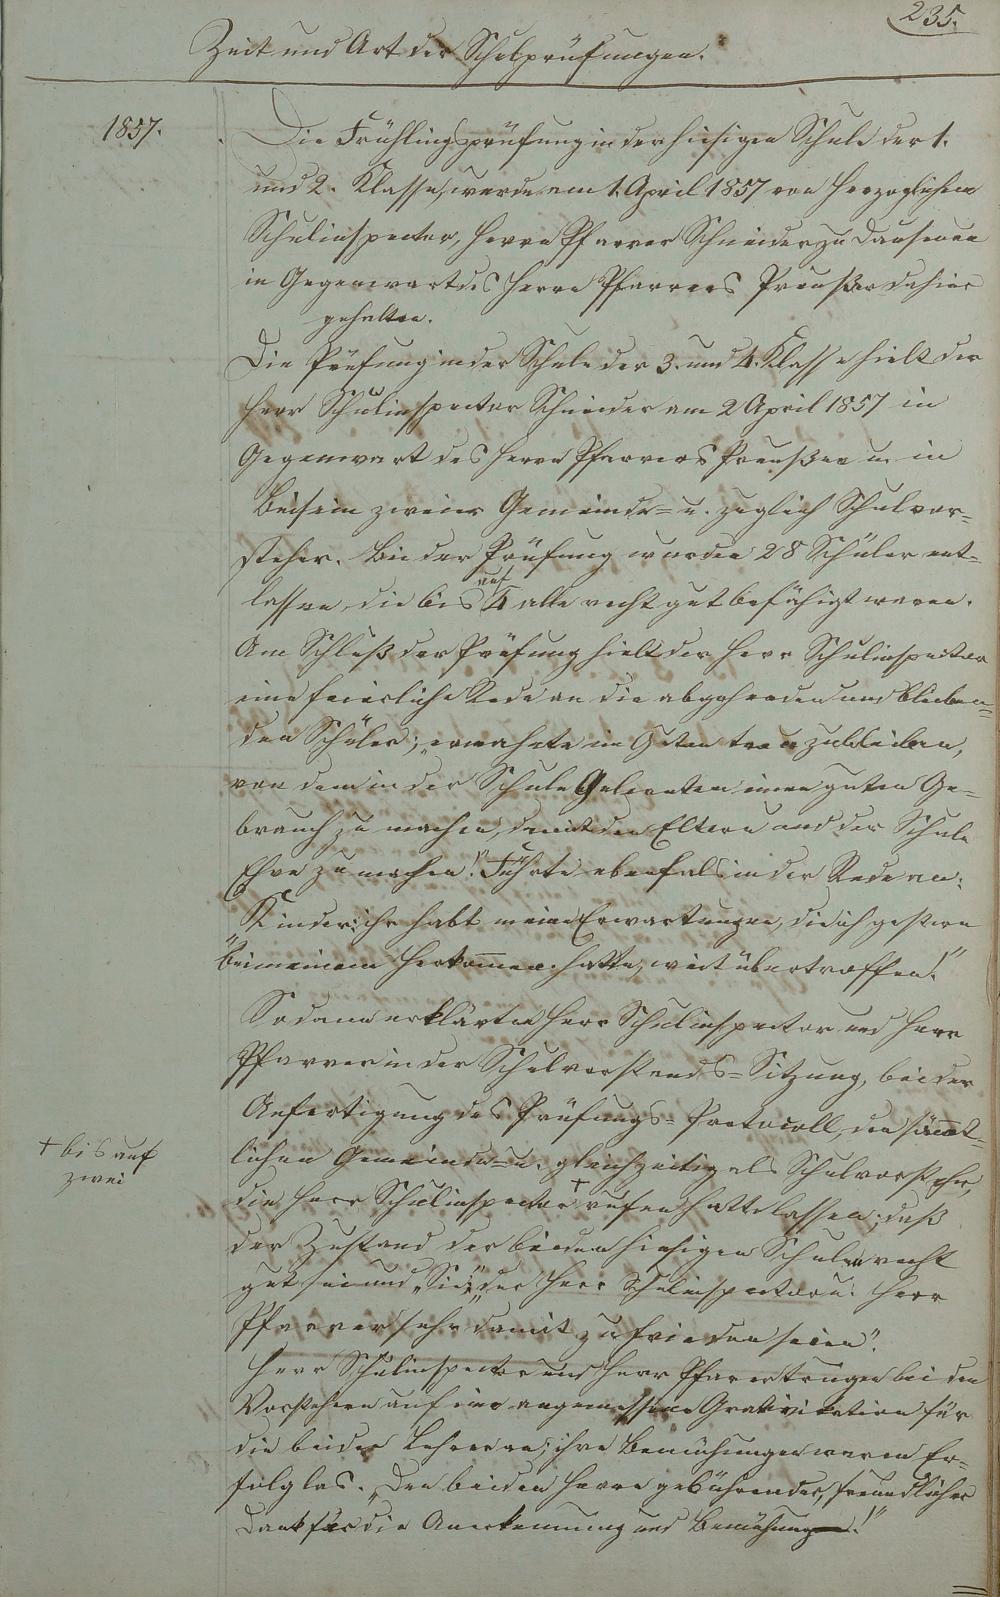 235.
Zeit und Art der Schulprüfungen.
1857.
Die Frühlingsprüfung in der hiesigen Schule der 1.
und 2. Klasse, wurde am 1. April 1857 von Herzoglichem
Schulinspector, Herrn Pfarrer Schneider zu Dausenau
in Gegenwart des Herrn Pfarrers Preußer dahier
gehalten.
Die Prüfung in der Schule der 3. und 4. Klasse hielt der
Herr Schulinspector Schneider am 2 April 1857 in
Gegenwart des Herrn Pfarrers Preußer u. in
Beisein zweier Gemeinde= u. zugleich Schulvor=
steher. Bei der Prüfung wurden 28 Schüler ent=
lassen, die bis auf 4 alle recht gut befähigt waren.
Am Schluß der Prüfung hielt der Herr Schulinspector
eine feierliche Rede an die abgehenden und bleiben=
den Schüler; „ermahnte im Guten treu zu bleiben,
von dem in der Schule Gelernten einen guten Ge=
brauch zu machen, damit den Eltern und der Schule
Ehre zu machen!" Führte ebenfals in der Rede an:
Kinder: ihr habt meine Erwartungen, die ich gestern
„bei meinem Herkommen hatte, weit übertroffen!"
Sodann erklärten Herr Schulinspector und Herr
Pfarrer in der Schulvorstands=Sitzung, bei der
Anfertigung des Prüfungs=Protocoll, den sämmt=
lichen Gemeinde= u. gleichzeitig als Schulvorsteher,
+ bis auf
zwei
die Herr Schulinspector + rufen hatte lassen; daß
der Zustand der beiden hiesigen Schulen recht
gut sei und „Sie", der Herr Schulinspector u. Herr
Pfarrer sehr damit zufrieden seien".
Herr Schulinspector und Herr Pfarrer trugen bei den
Vorstehern auf eine angemessene Gratification für
die beiden Lehrer an; ihre Bemühungen waren Er=
folglos. „Den beiden Herrn gebührender, freundlicher
Dank für die Anerkennung und Bemühung!"